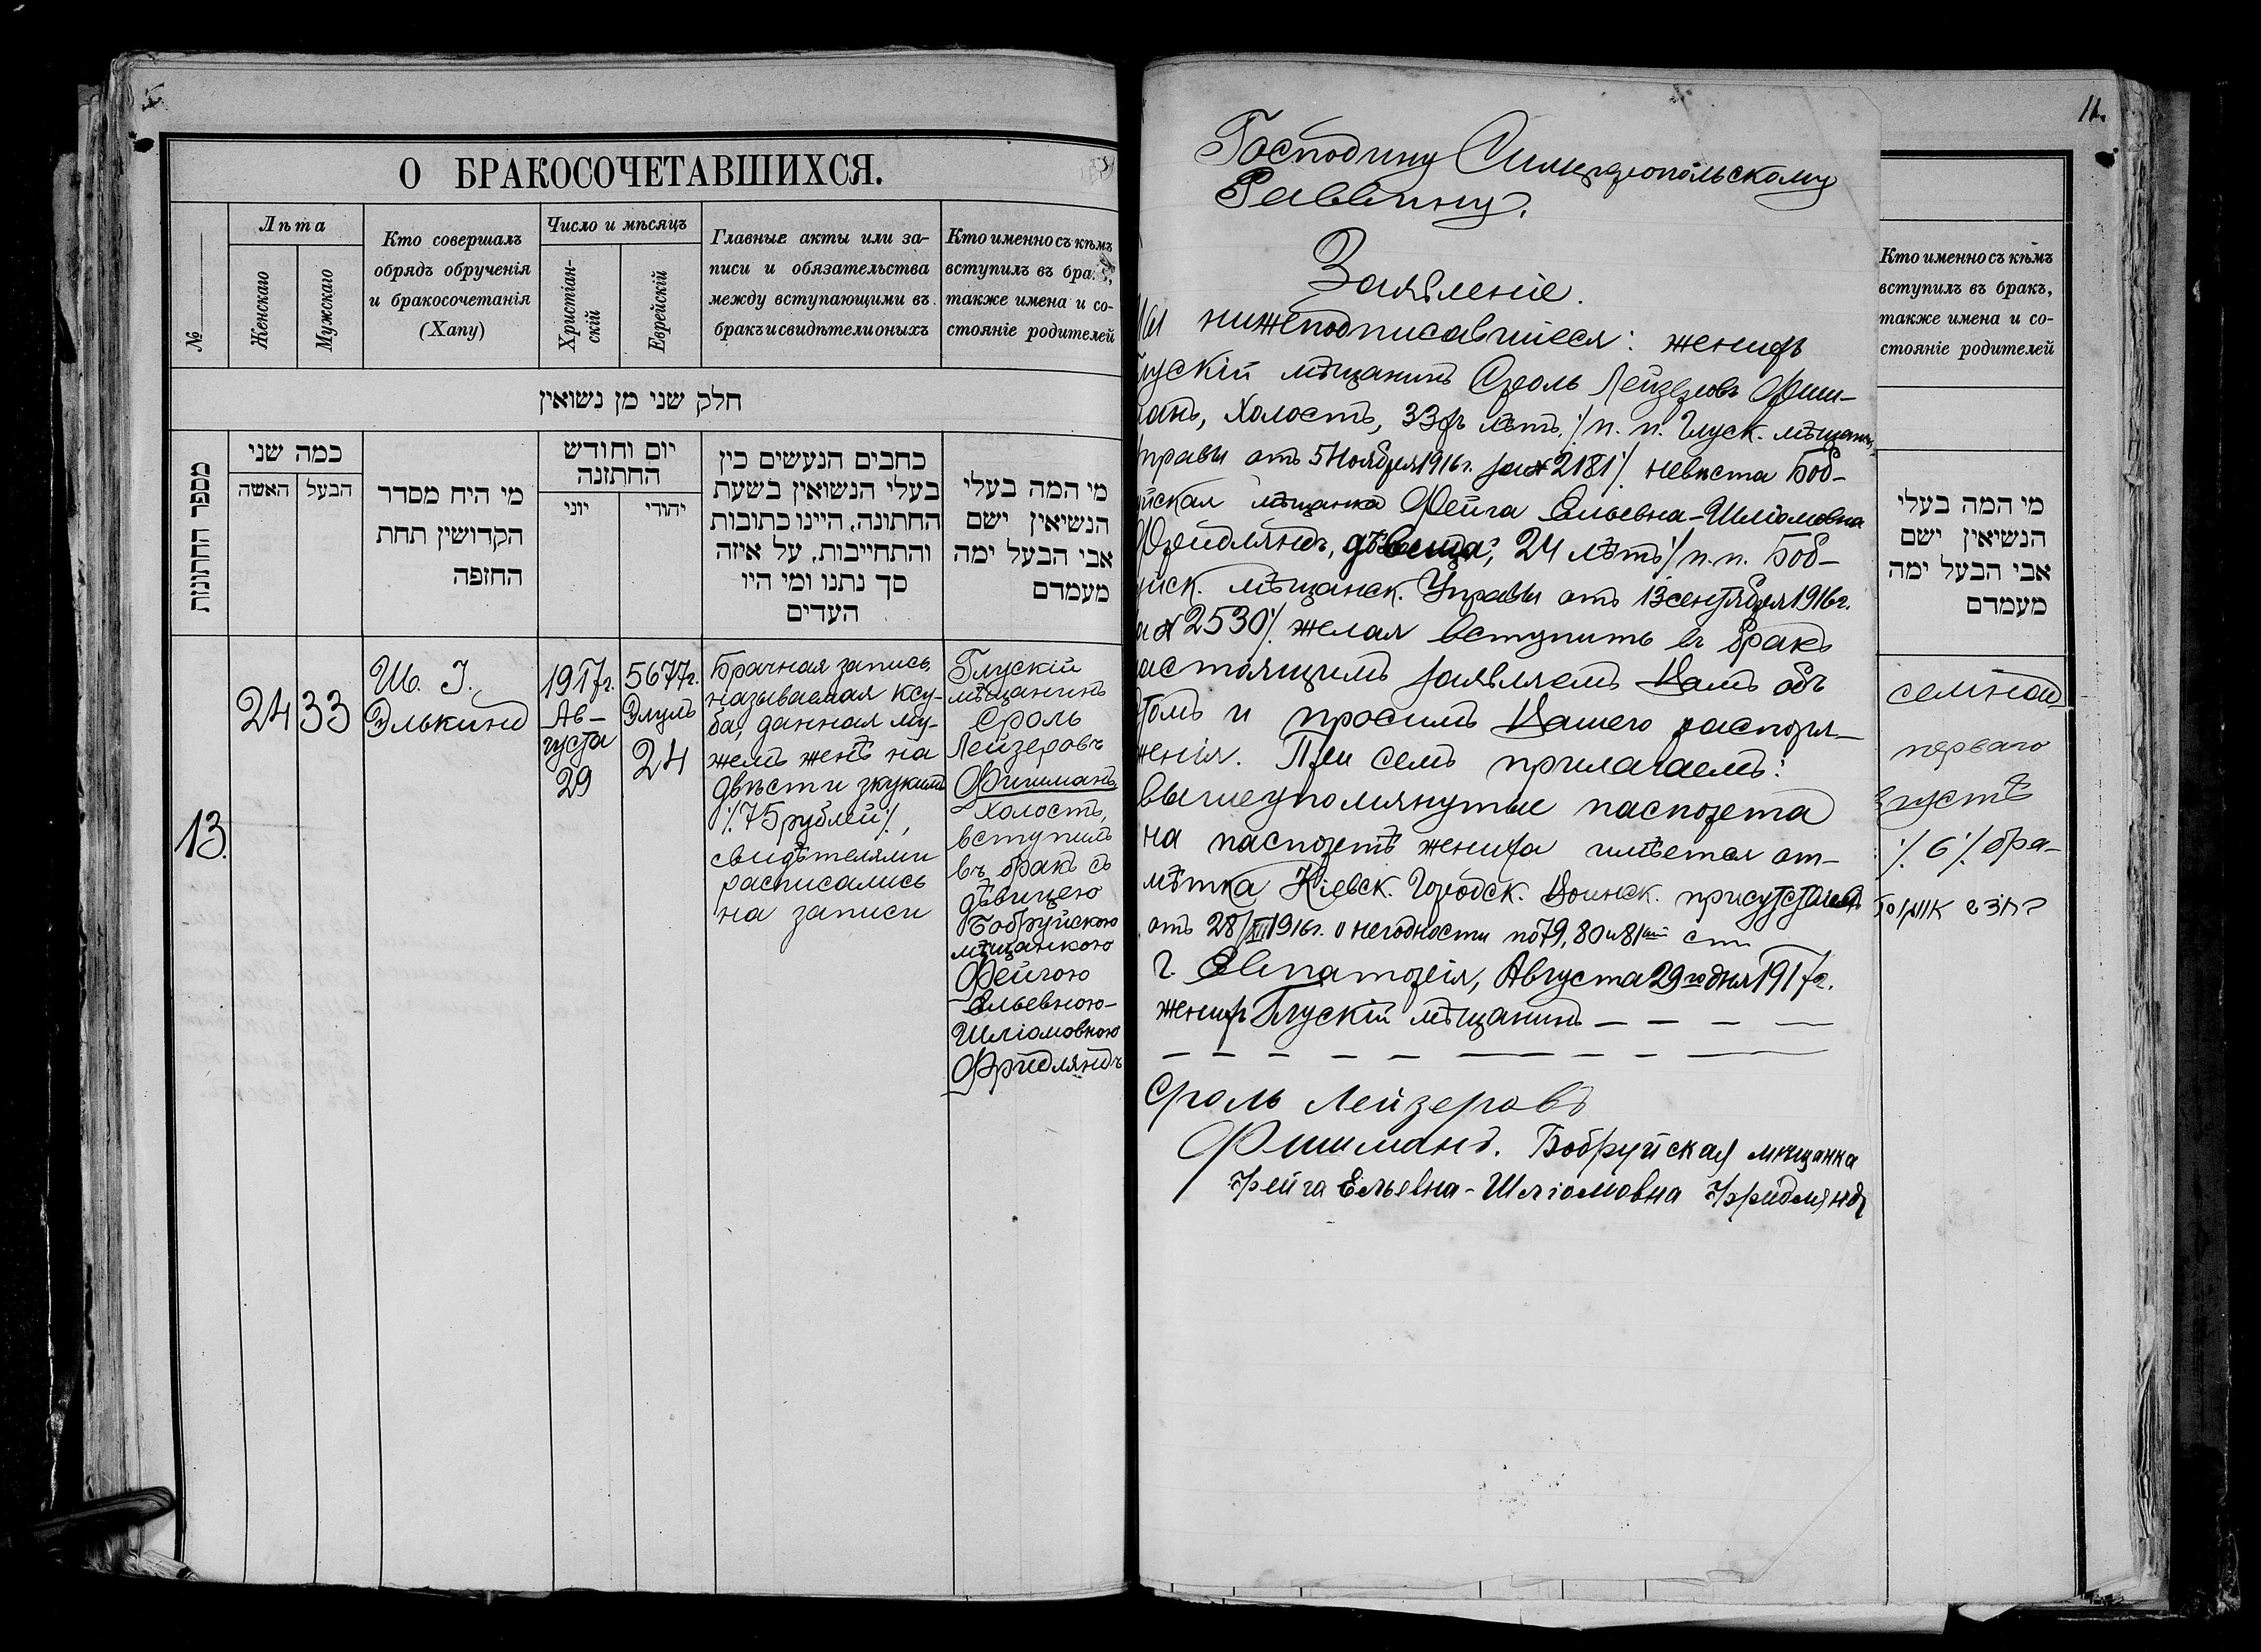 О БРАКОСОЧЕТАВШИХСЯ.
№
Лѣта
Женскаго
Мужскаго
Кто совершалъ
обрядъ обрученія
и бракосочетанія
(Хапу)
Число и мѣсяцъ
Христіан-
скій
Еврейскій
Главные акты или за-
писи и обязательства
между вступающими въ
бракъ и свидѣтели оныхъ
Кто именно съ кѣмъ
вступилъ въ бра
также имена и со-
стояніе родителей
חלק שני מן נשואין
מספר החתונות
כמה שני
האשה
הבעל
מי היח מסדר
הקדושין תחת
החזפה
יום וחודש
החתזנה
יוני
יהודי
כחבים הנעשים כין
בעלי הנשואין בשעת
החתונה, היינו כתובות
והתחייבות, על איזה
סך נתנו ומי היו
העדים
מי המה בעלי
הנשיאין ישם
אבי הבעל ימה
מעמדם
13.
24
33
Ш. І.
Элькинд
1917г.
Ав-
густа
29
5677г.
Элулъ
24
Брачная запись,
называемая ксу-
ба, данная му-
жемъ женѣ на
двѣсти зкукимъ
./.75 рублей/.,
свидѣтелями
расписались
на записи
Глускій
мѣщанинъ
Сроль
Лейзеровъ
Фишманъ,
холостъ,
вступилъ
въ бракъ съ
дѣвицею
Бобруйскою
мѣщанкою
Фейгою
Ельевною-
Шліомовною
Фридляндъ
11.
Господину Симферопольскому
Раввину.
Заявленіе.
нижеподписавшіеся: женихъ
лускій мѣщанинъ Сроль Лейзеровъ Фиш-
манъ, холостъ, 33хъ лѣтъ ./. п. п. Глуск. мѣщанск.
правы отъ 5 Ноября 1916г. за № 2181 ./. невѣста Боб-
йская мѣщанка Фейга Ельевна-Шліомовна
Фридляндъ, дѣвица, 24 лѣтъ ./. п. п. Боб-
йск. мѣщанск. Управы отъ 13 сентября 1916г.
а № 2530 ./. желая вступить въ бракъ
астоящимъ заявляемъ Вамъ объ
томъ и просимъ Вашего распоря-
женія. При семъ прилагаемъ:
вышеупомянутые паспорта
на паспортѣ жениха имѣется от-
мѣтка Кіевск. Городск. Воинск. присутствія
отъ 28/XII 1916г. о негодности по 79, 80 и 81 ст
г. Евпаторія, Августа 29 го дня 1917г.
женихъ Глускій мѣщанинъ — — — —
Сроль Лейзеровъ
Фишманъ. Бобруйская мѣщанка
Фейга Ельевна-Шліомовна Фридляндъ
Кто именно съ кѣмъ
вступилъ въ бракъ,
также имена и со-
стояніе родителей
מי המה בעלי
הנשיאין ישם
אבי הבעל ימה
מעמדם
семнад
перваго
густѣ
./. 6 ./. бра-